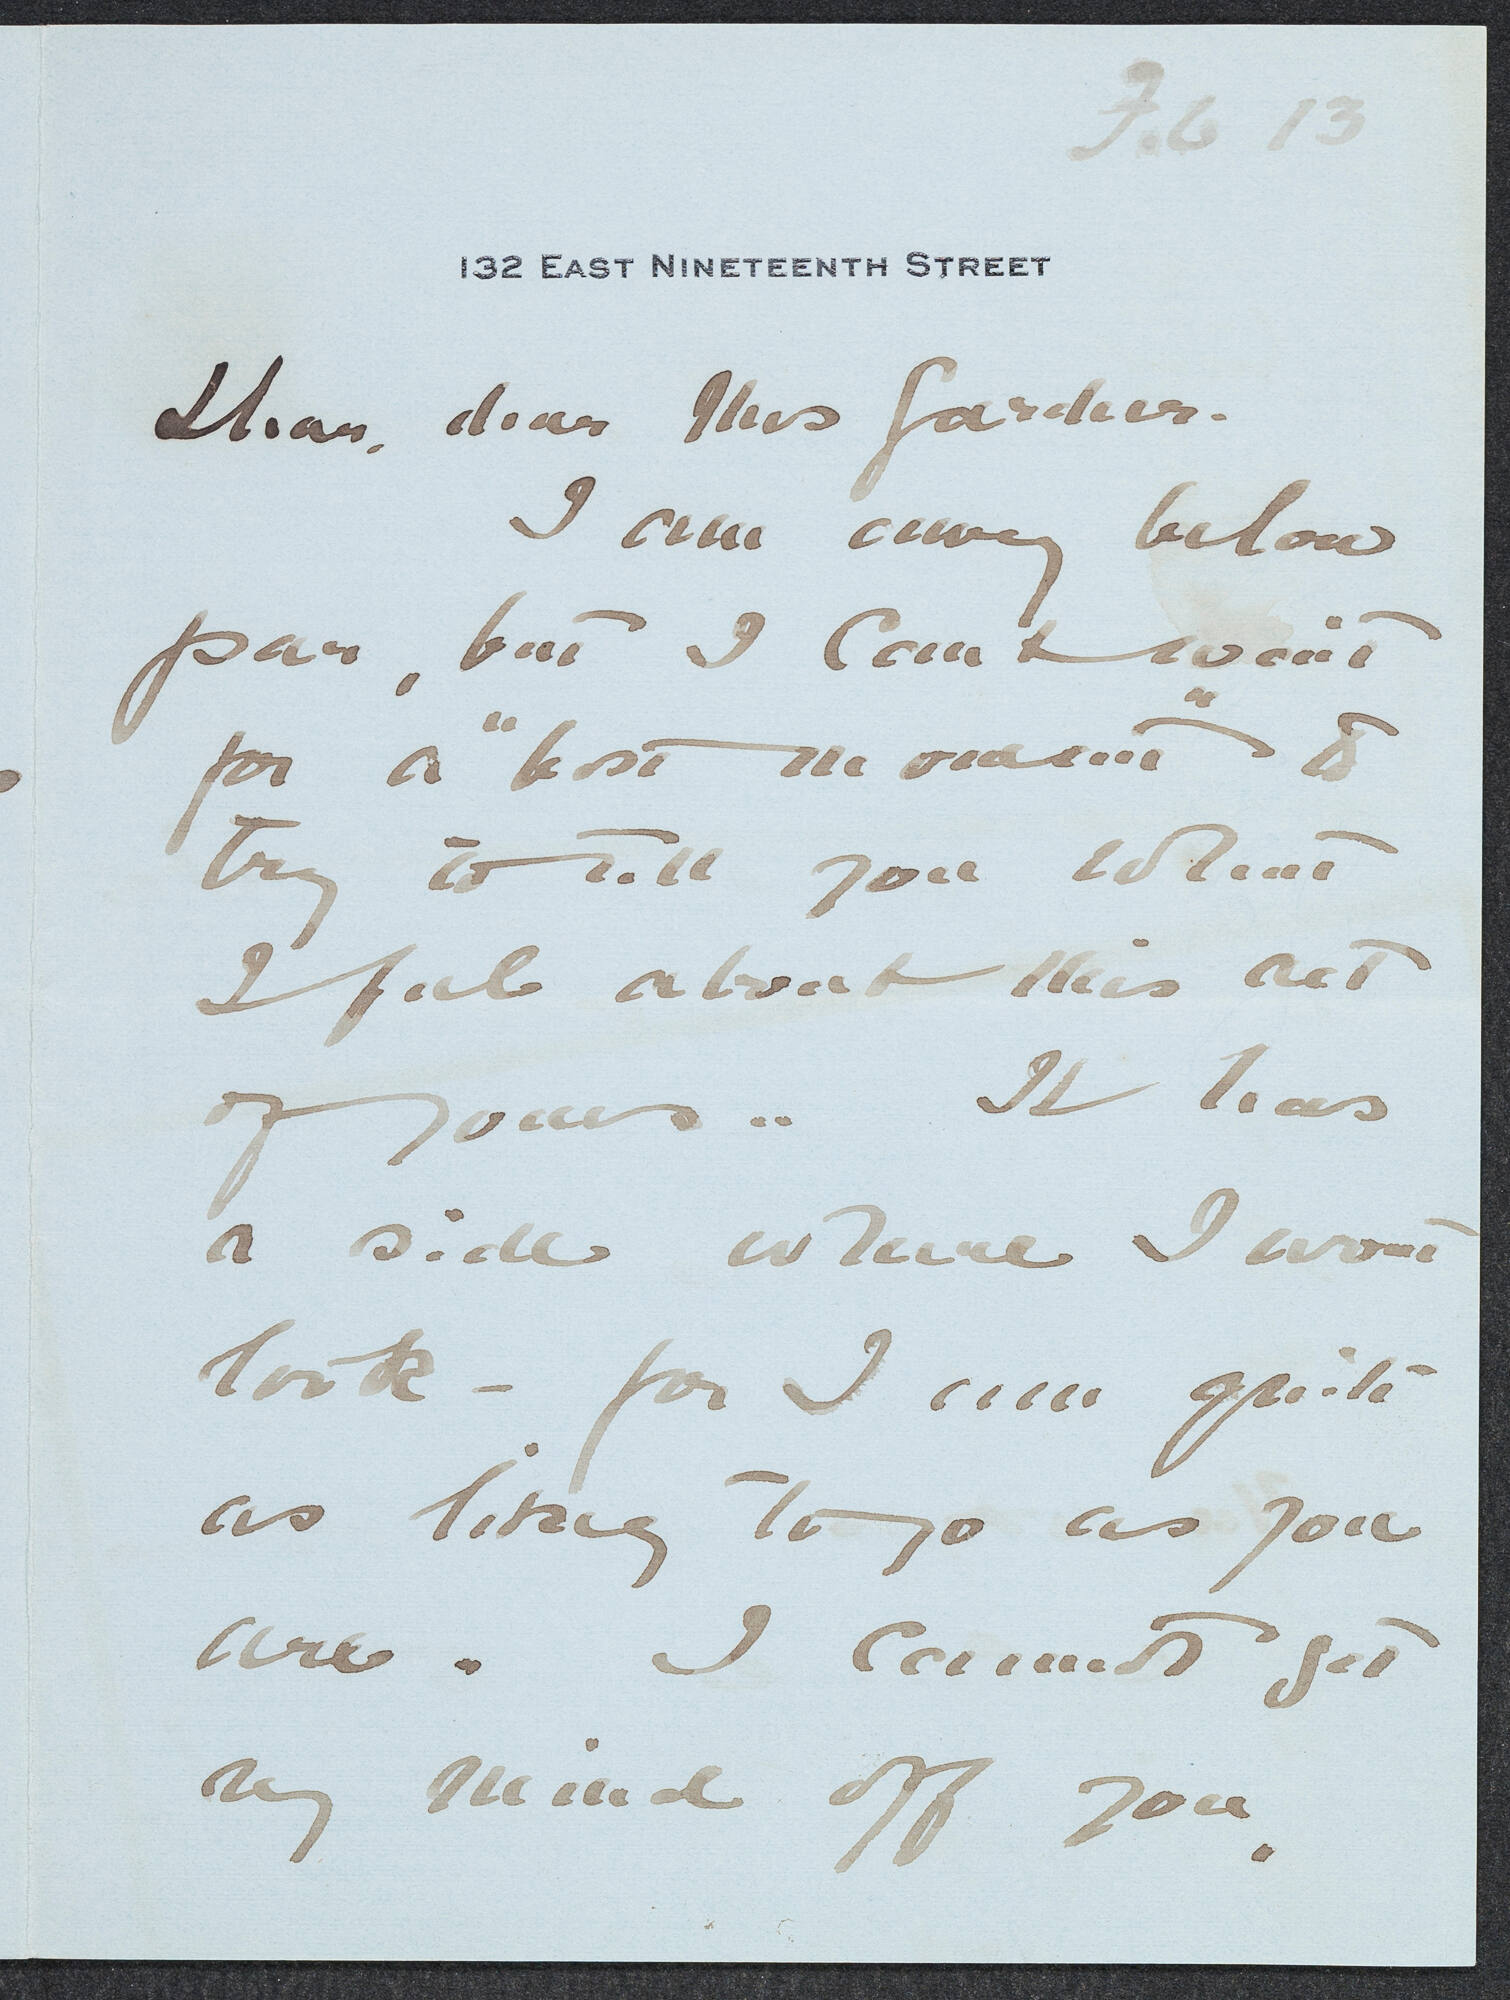 Feb 13
132 EAST NINETEENTH STREET
Dear, dear Mrs Gardner.
I am away below
par, but I cant wait
for a "best moment" to
try to tell you what
I feel about this act
of yours.. It has
a side where I wont
look - for I am quite
as likely to go as you
are. I cannot get
my mind off you,